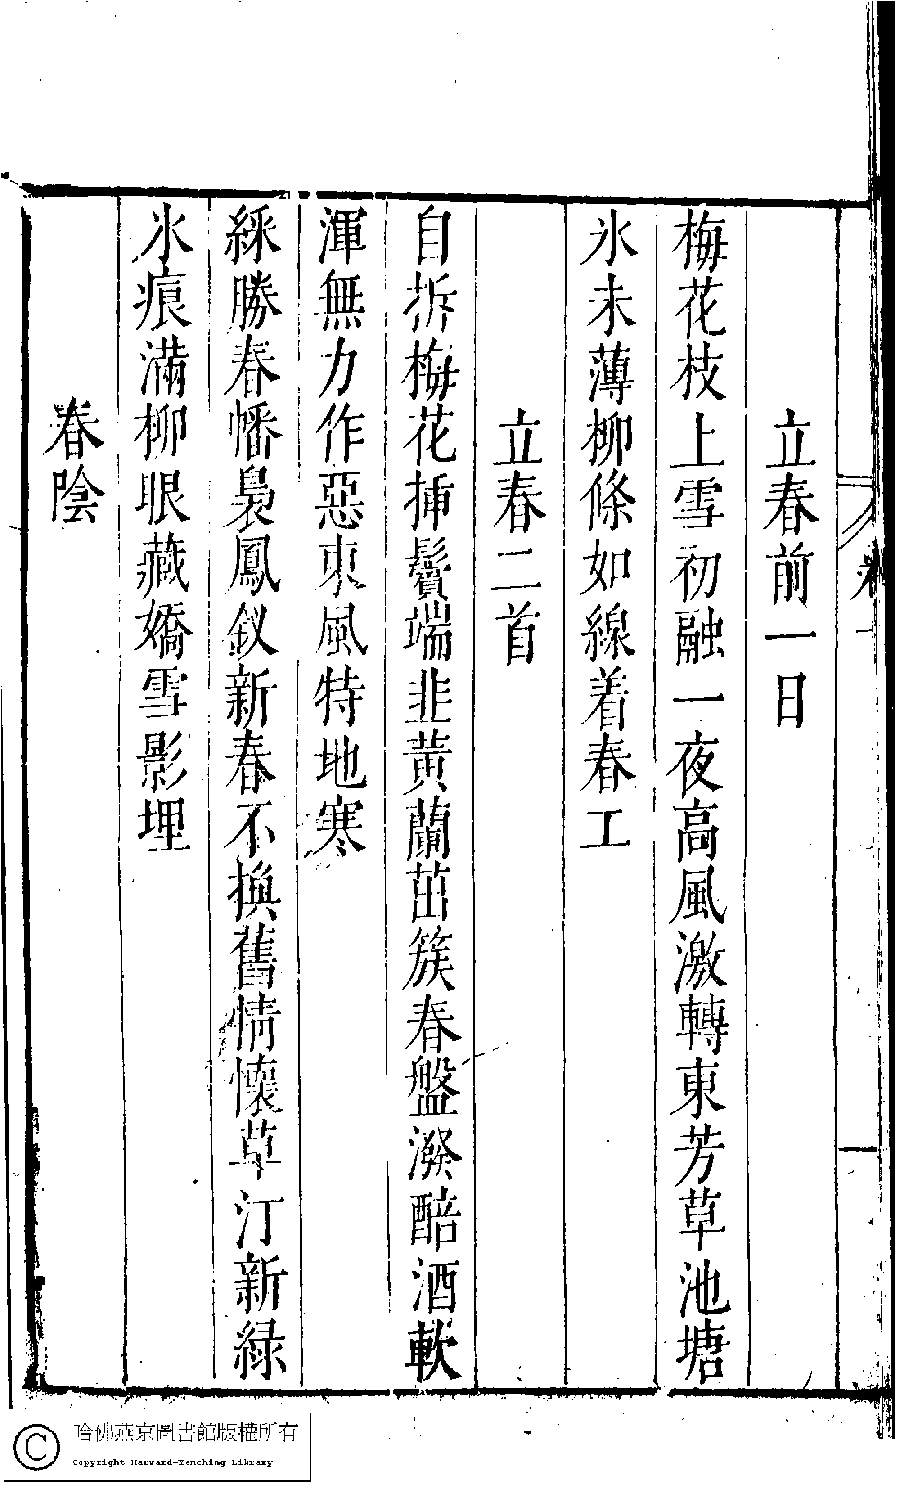 卷一
立春前一日
梅花枝上雪初融一夜高風激轉東芳草池塘
氷未薄柳條如線着春工
立春二首
自拆梅花揷鬢端韭黃蘭茁簇春盤潑醅酒軟
渾無力作惡東風特地寒
綵勝春幡裊鳳釵新春不換舊情懷草汀新綠
氷痕滿柳眼藏嬌雪影埋
春陰
哈佛燕京圖書館版權所有
Copyright Harvard-Yenching Library